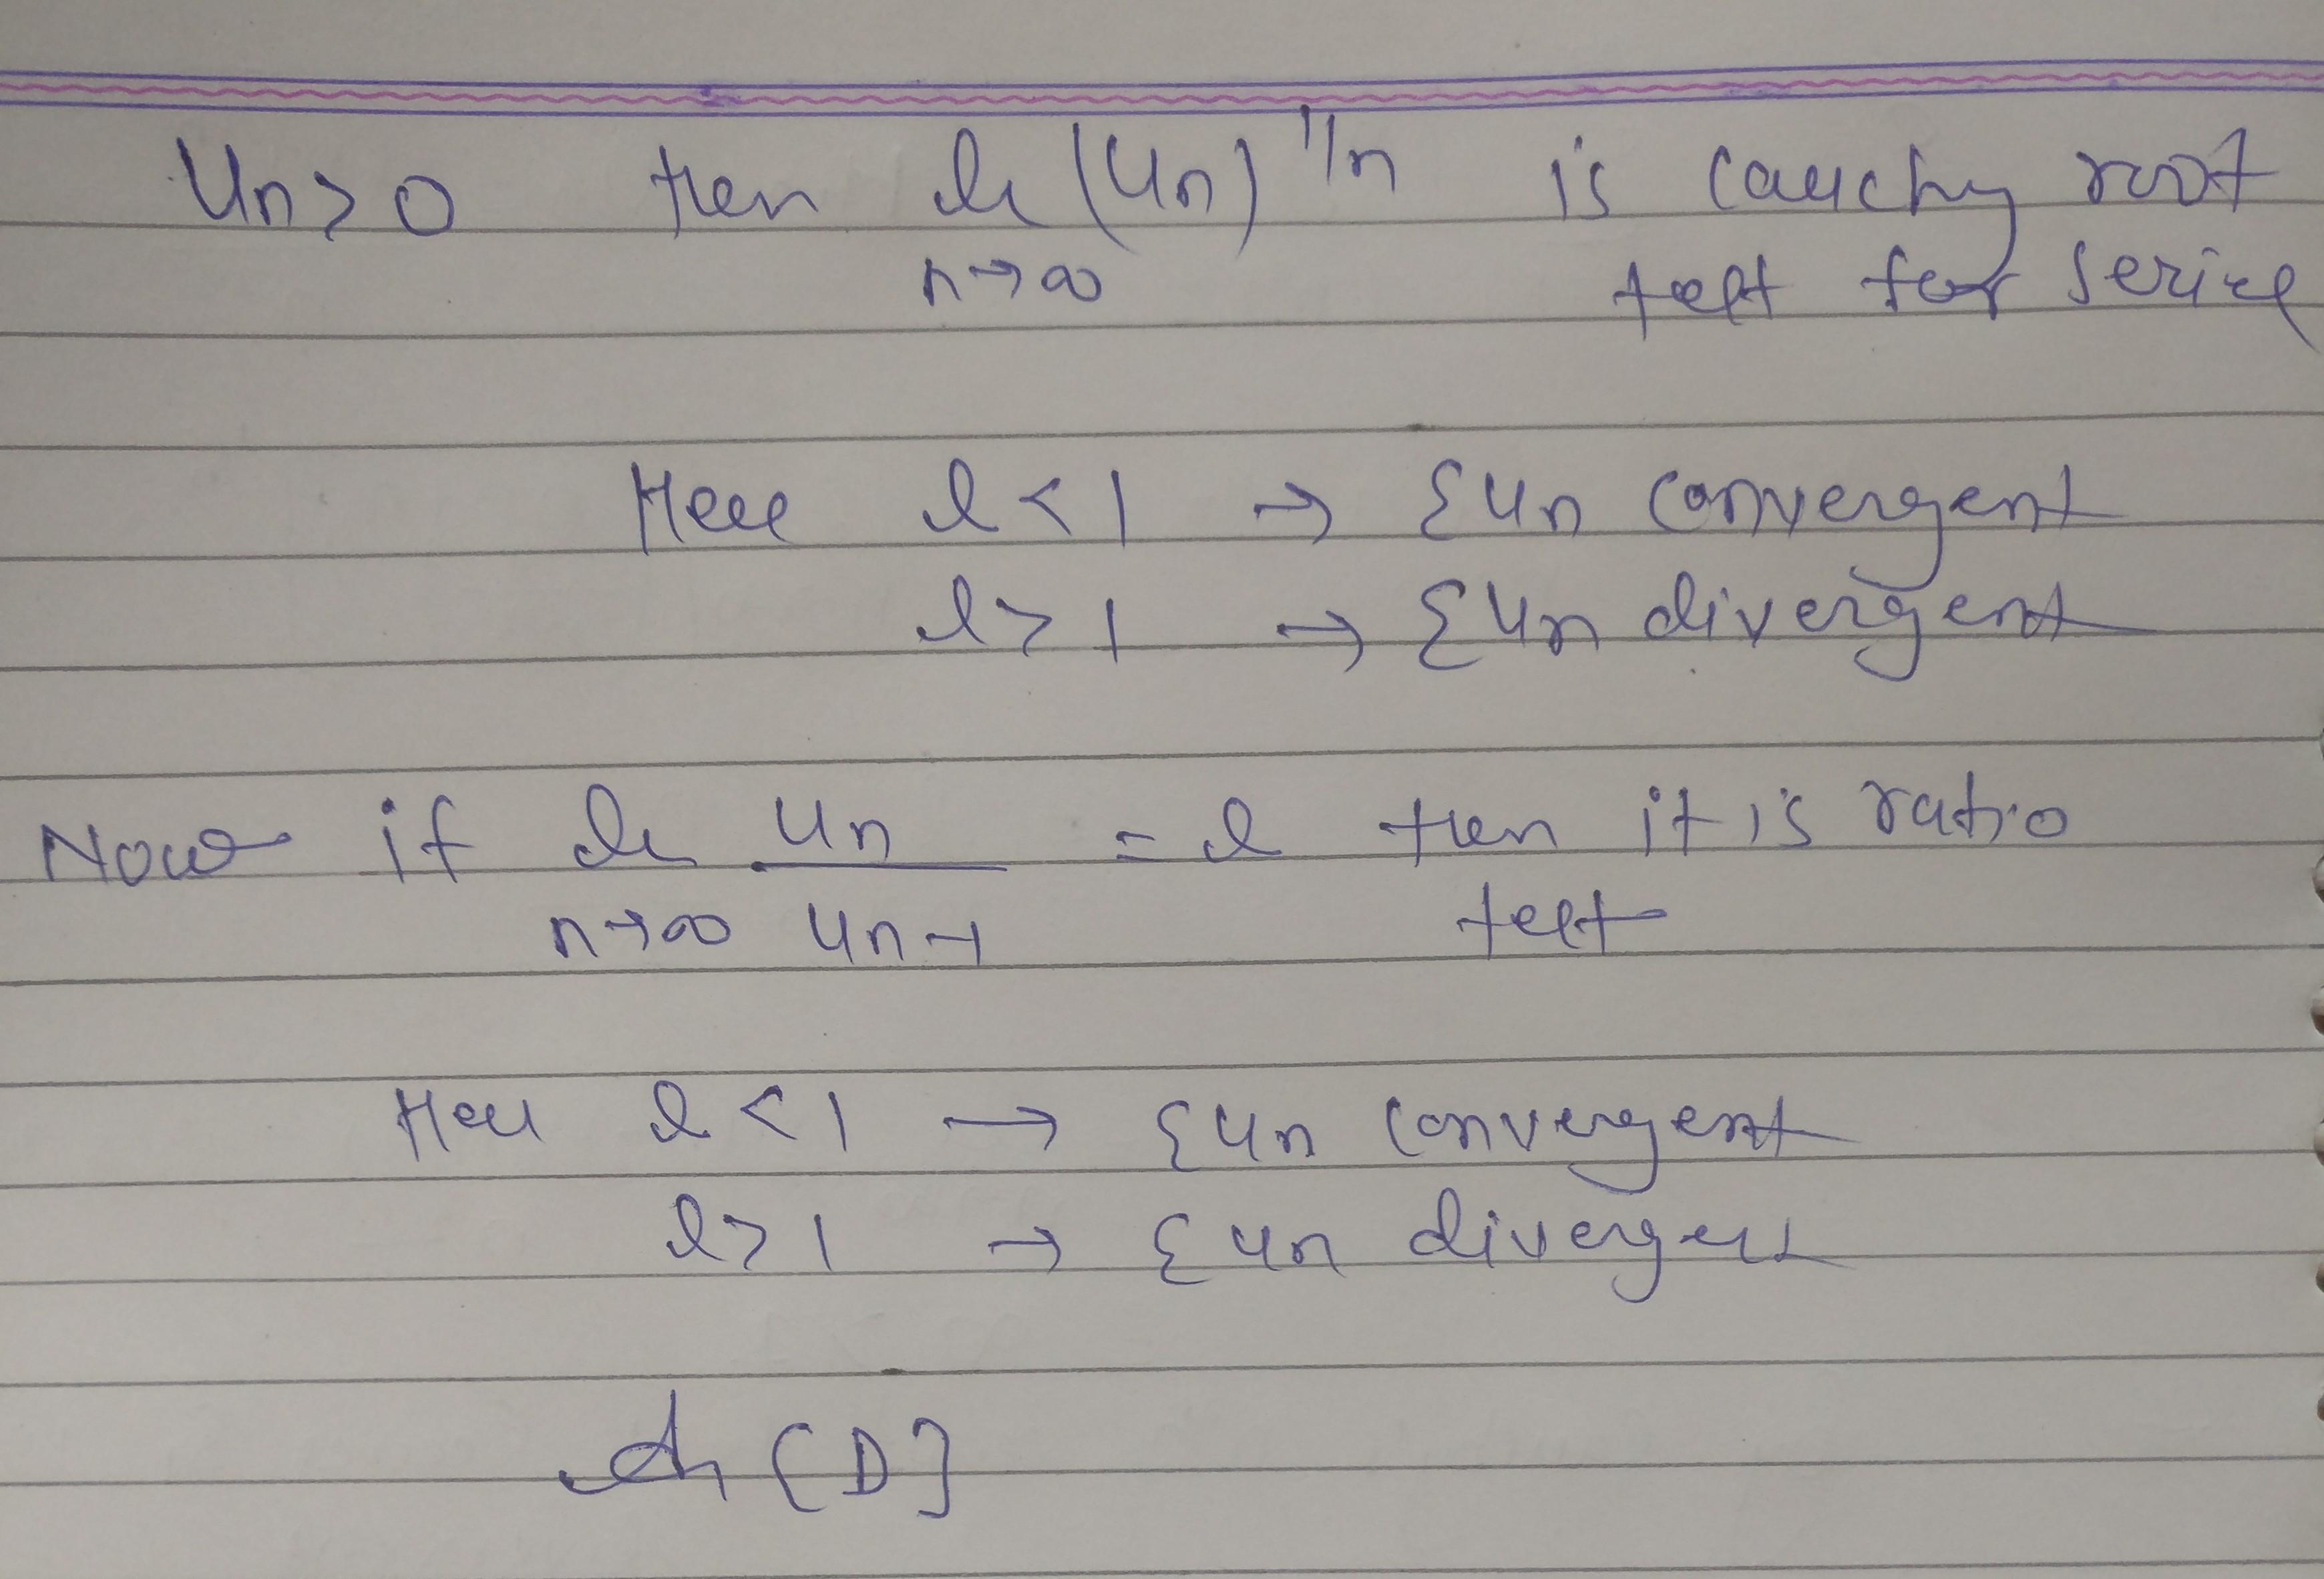 Un > 0 then lt (Un)^1/n is cauchy root
n→∞ test for series
Here l < 1 → Σun convergent
l > 1 → Σun divergent
Now if lt un = l then it is ratio
n→∞ un-1 test
Here l < 1 → Σun convergent
l > 1 → Σun divergent
[D]